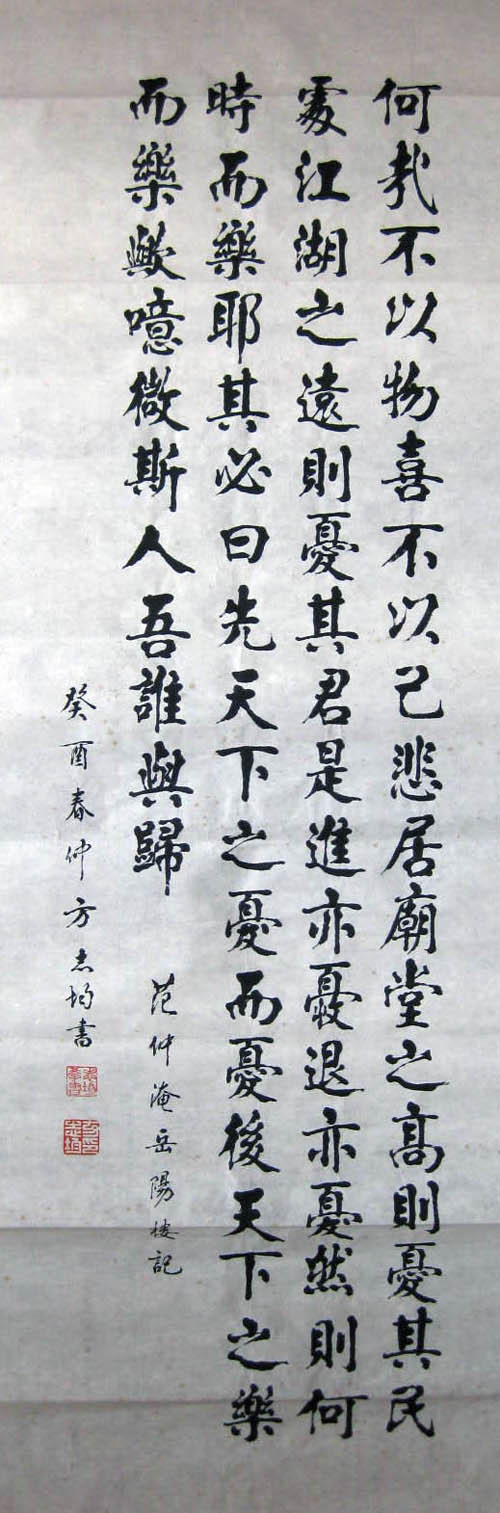 何哉不以物喜不以己悲居廟堂之高則憂其民
處江湖之遠則憂其君是進亦憂退亦憂然則何
時而樂耶其必曰先天下之憂而憂後天下之樂
而樂歟噫微斯人吾誰與歸
范仲淹岳陽樓記
癸酉春仲方志均書